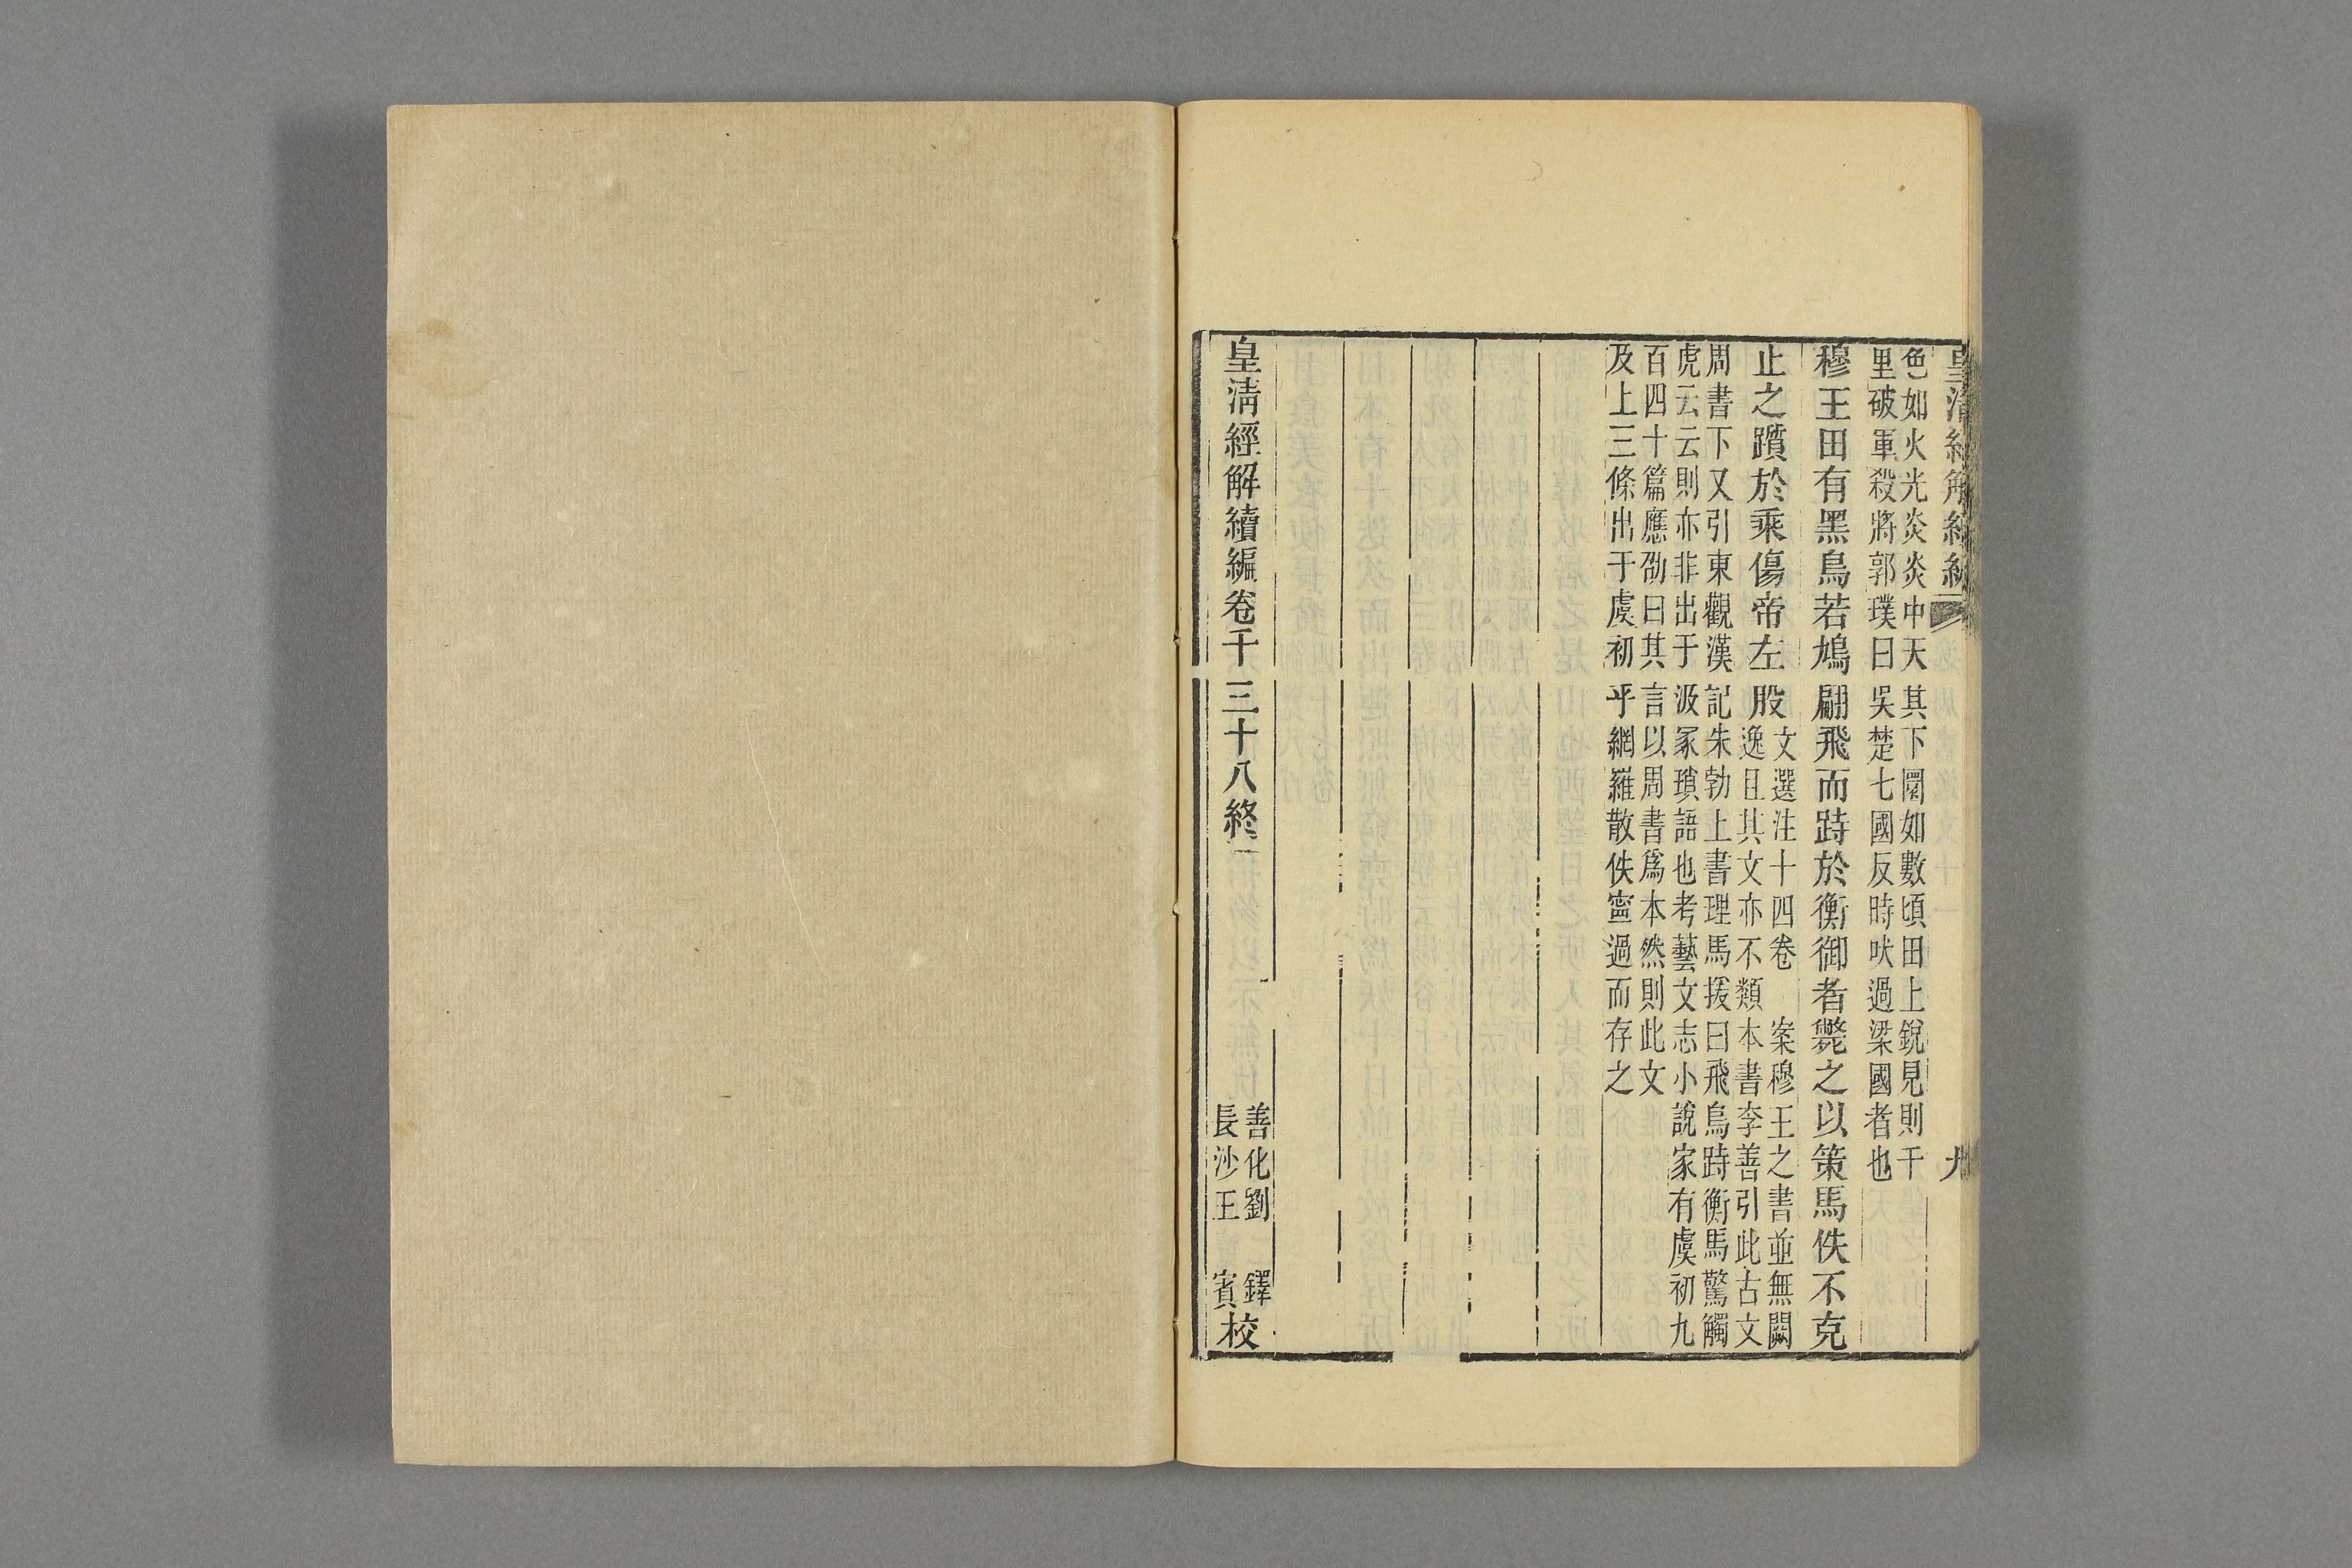 皇清經解續編
九
色如火光炎炎中天其下圜如數頃田上銳見則千
里破軍殺將郭璞曰吳楚七國反時吠過梁國者也
穆王田有黑鳥若鳩翩飛而跱於衡御者斃之以策馬佚不克
止之躓於乘傷帝左股
文選注十四卷　案穆王之書並無闕
逸且其文亦不類本書李善引此古文
周書下又引東觀漢記朱勃上書理馬援曰飛鳥跱衡馬驚觸
虎云云則亦非出于汲冢瑣語也考藝文志小說家有虞初九
百四十篇應劭曰其言以周書為本然則此文
及上三條出于虞初乎網羅散佚寧過而存之
皇清經解續編卷千三十八終
善化劉鐸
長沙王賓
校